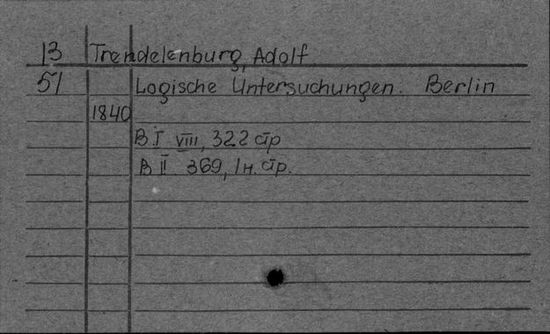 13 Trendelenburg, Adolf
51 Logische Untersuchungen. Berlin
1840
B. I VIII, 322 стр
B II 369, 1 н. стр.